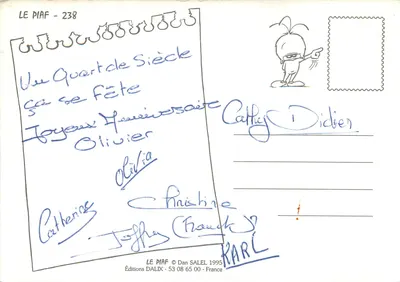 LE PIAF - 238
Un Quart de Siècle
ça se fête
Joyeux Anniversaire
Olivier
Olivia
Cathy Didier
Catherine
Christine
Joffrey (Franck)
KARL
LE PIAF © Dan SALEL 1995
Éditions DALIX - 53 08 65 00 - France